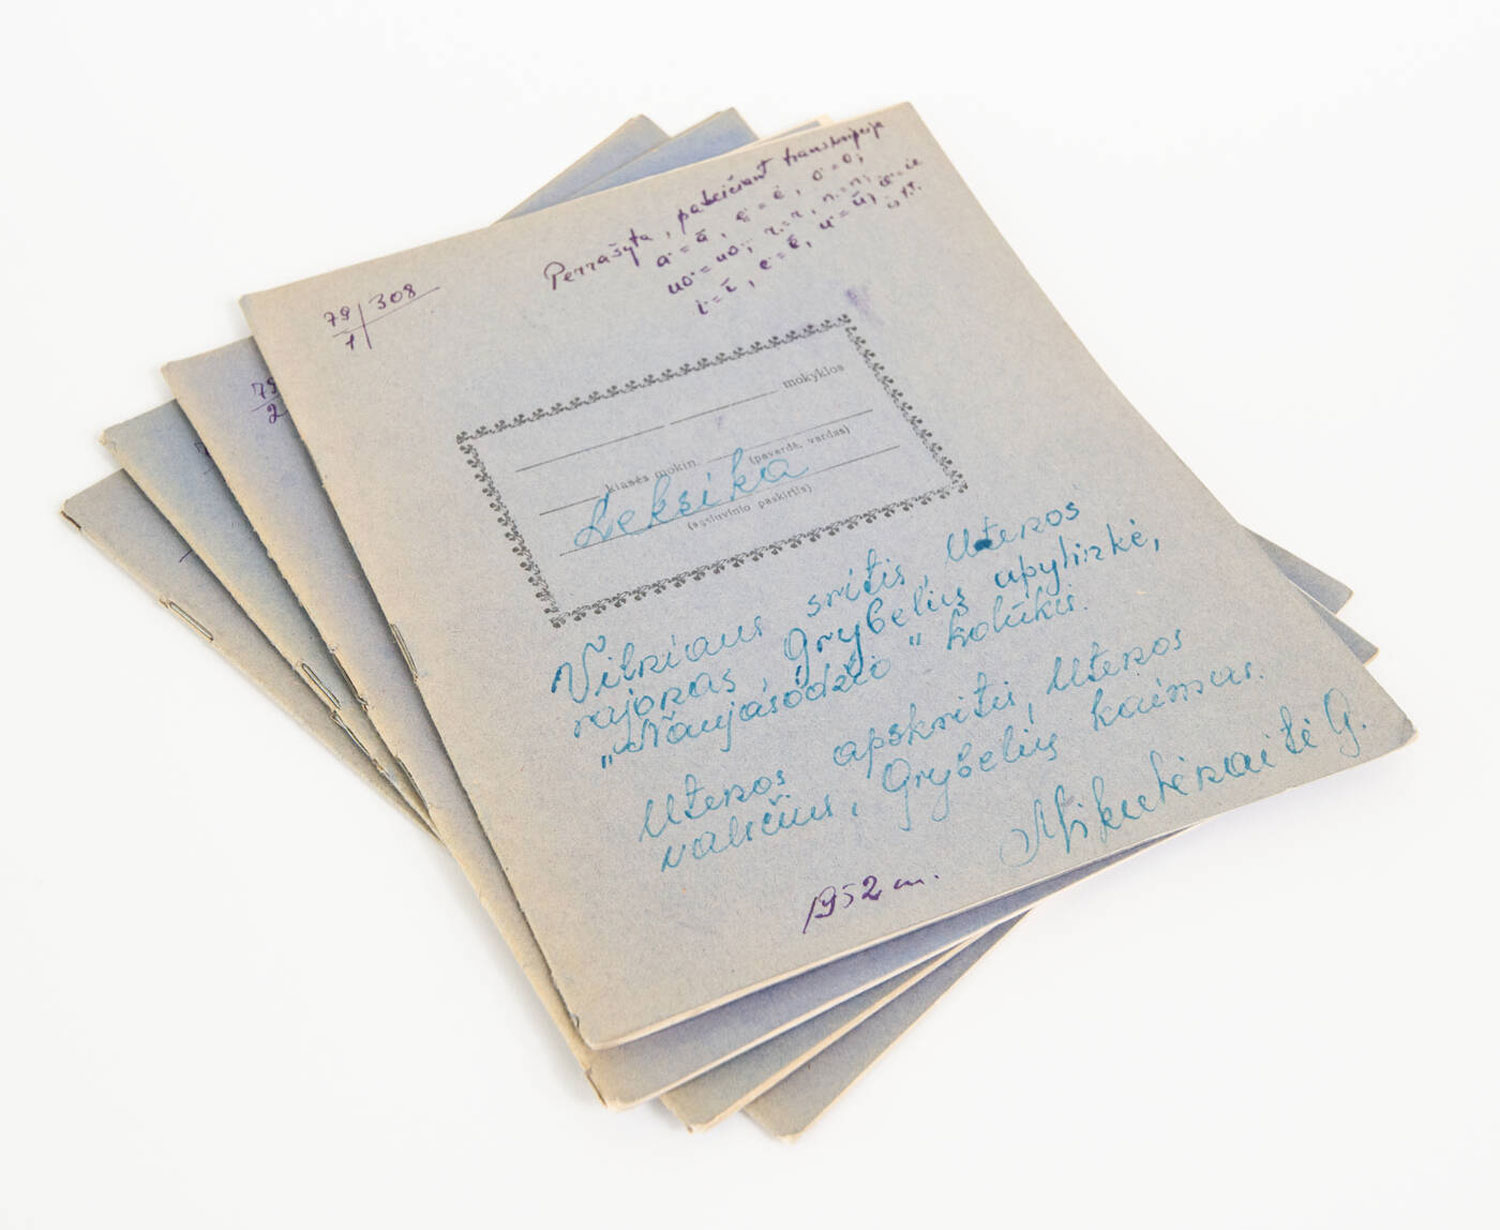 Perrašyta, pakeičiant transkripciją
a· = ā, ė· = ė, o· = o;
uo· = uo; r. = r, n. = n; ie· = ie
i· = ī, e· = ē, u· = ū, ir t.t.
79/1 308
mokyklos
klasės mokin.
(pavardė, vardas)
Leksika
(sąsiuvinio paskirtis)
Vilniaus sritis, Utenos
rajonas, Grybelių apylinkė,
„Naujasodžio" kolūkis.
Utenos apskritis, Utenos
valsčius, Grybelių kaimas.
Mikutėnaitė G.
1952 m.
79
2